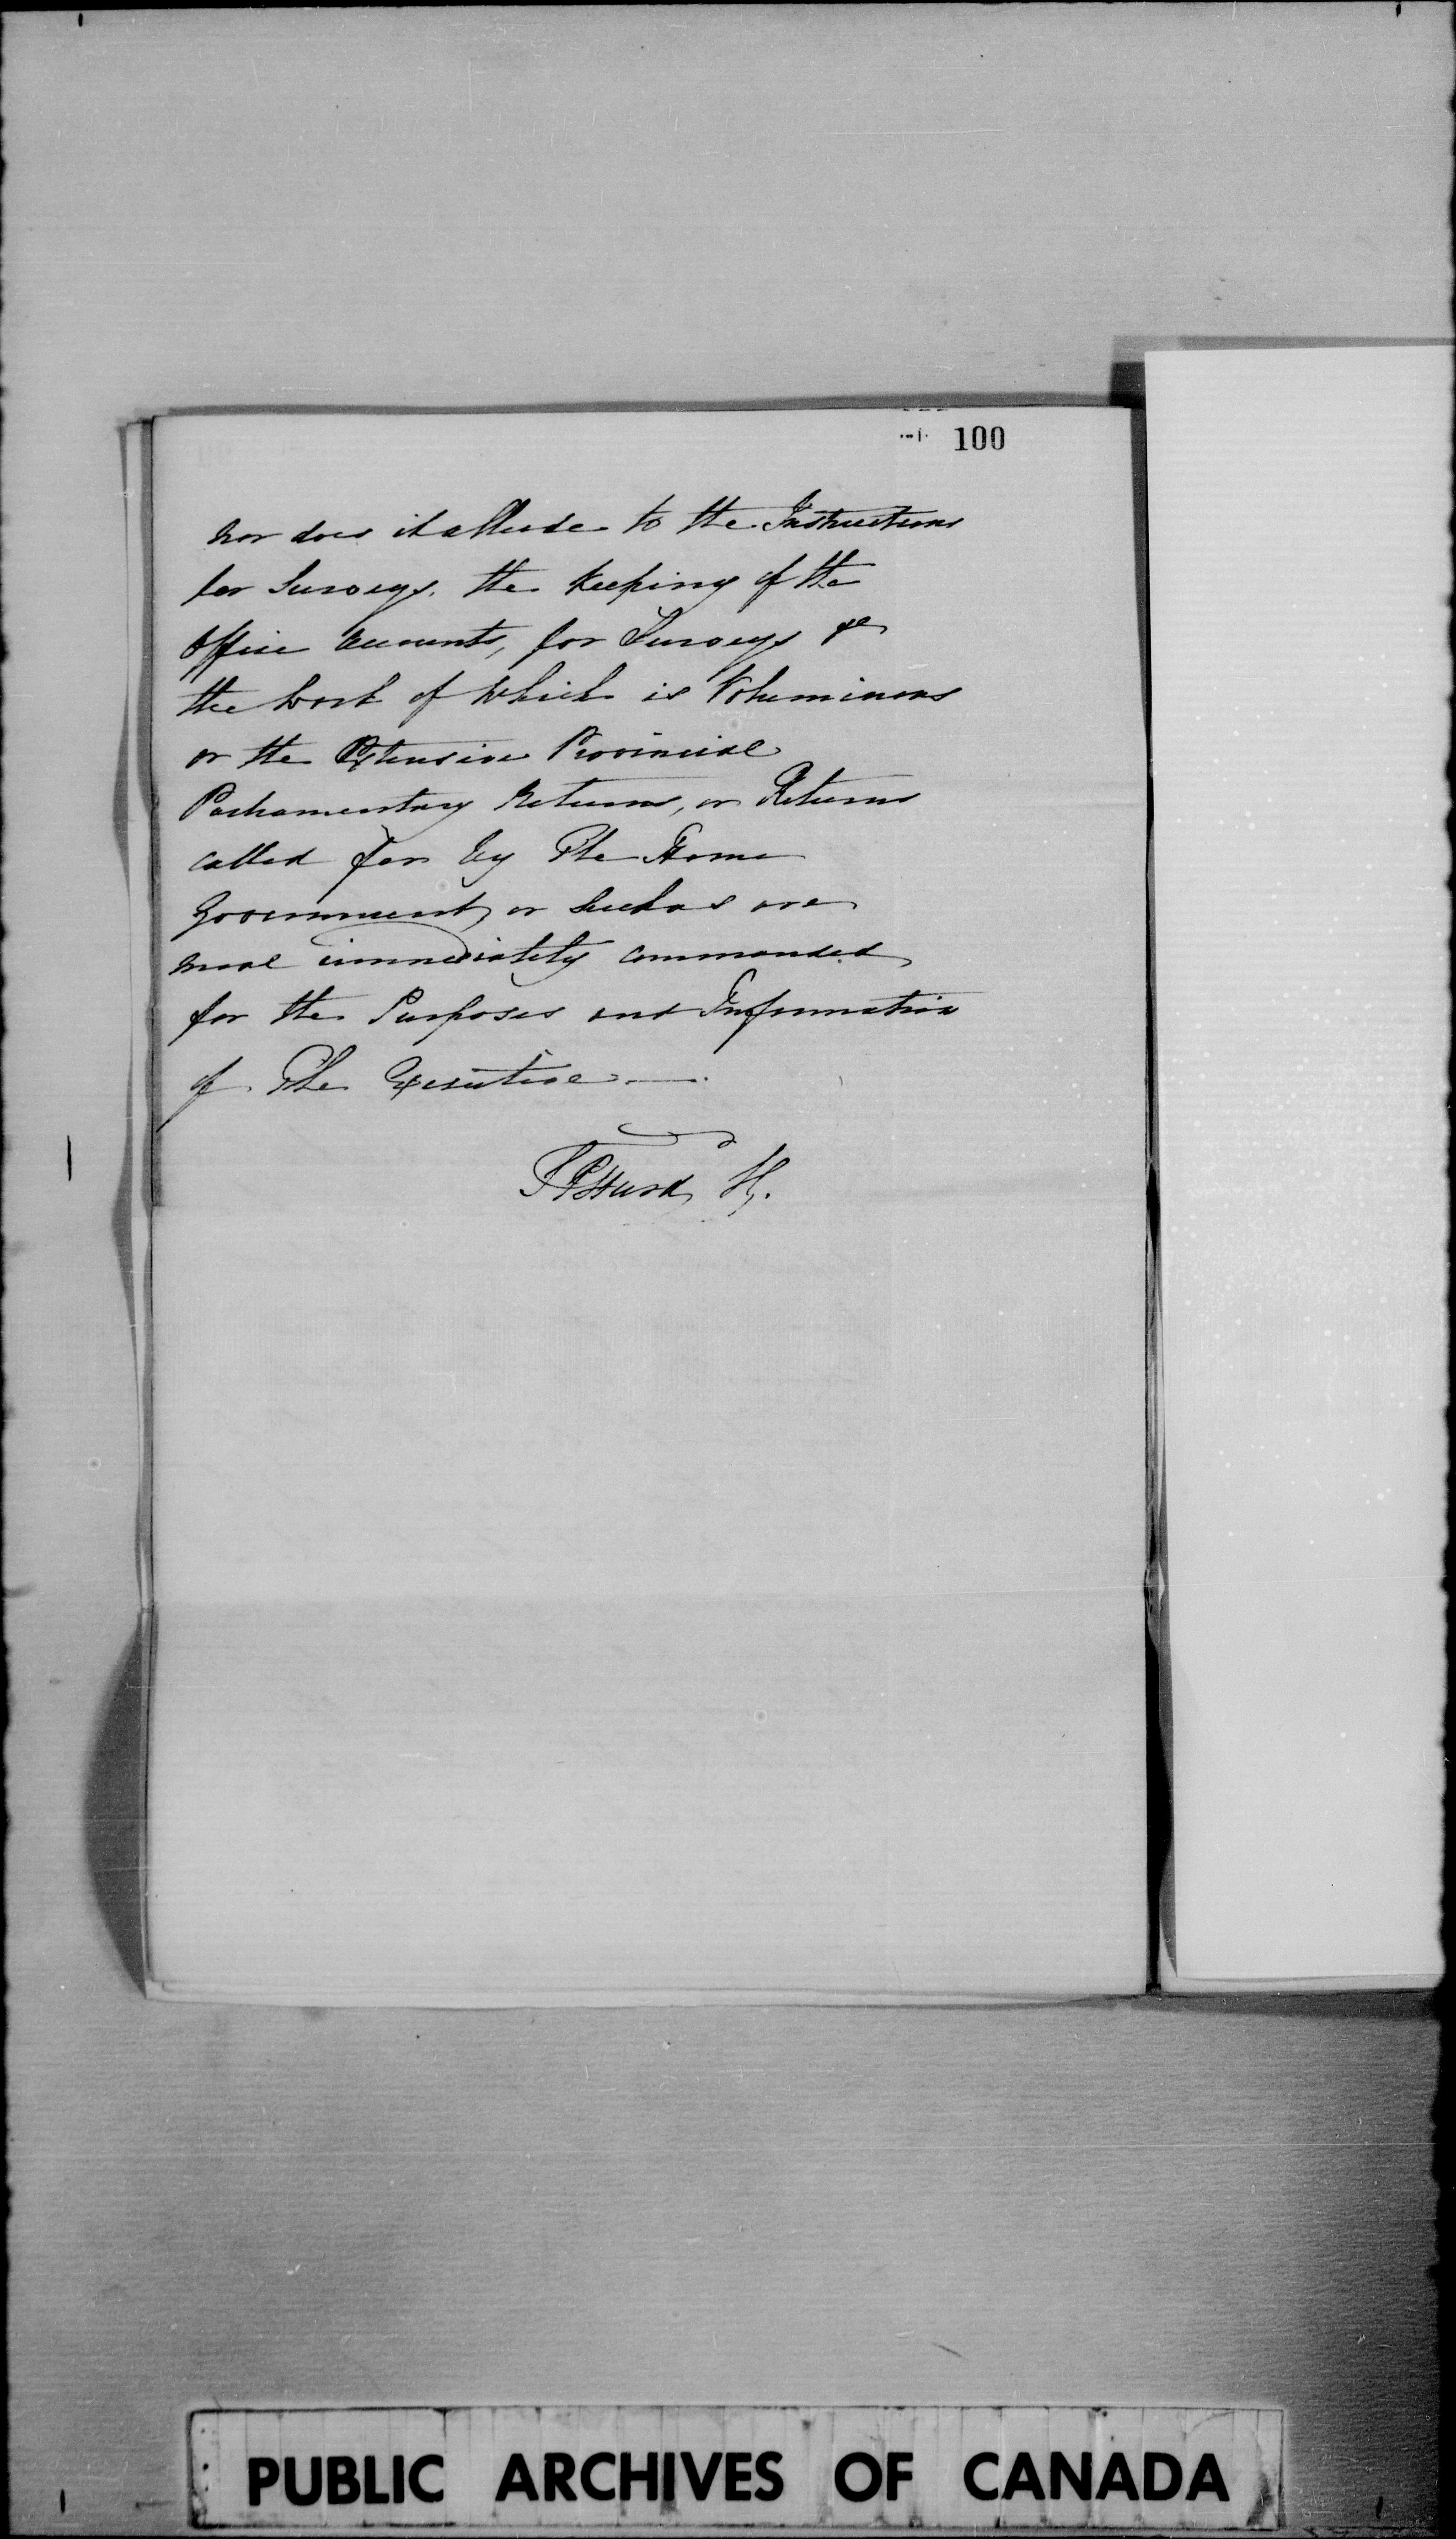 100
nor does it allude to the Instructions
for Surveys. the keeping of the
Office accounts, for Surveys &c
the work of which is Voluminous
or the Extensive Provincial
Parliamentary Returns, or Returns
called for by The Home
Government, or such as are
more immediately commanded
for the Purposes and Information
of The Executive —.
S P Hurd
PUBLIC ARCHIVES OF CANADA